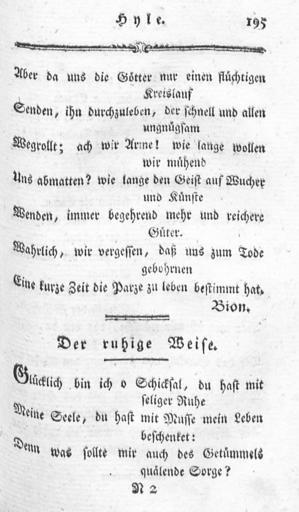 Hyle. 195
Aber da uns die Götter nur einen flüchtigen
Kreislauf
Senden, ihn durchzuleben, der schnell und allen
ungnügsam
Wegrollt; ach wir Arme! wie lange wollen
wir mühend
Uns abmatten? wie lange den Geist auf Wucher
und Künste
Wenden, immer begehrend mehr und reichere
Güter.
Wahrlich, wir vergessen, daß uns zum Tode
gebohrnen
Eine kurze Zeit die Parze zu leben bestimmt hat.
Bion.
Der ruhige Weise.
Glücklich bin ich o Schicksal, du hast mit
seliger Ruhe
Meine Seele, du hast mit Musse mein Leben
beschenket:
Denn was sollte mir auch des Getümmels
quälende Sorge?
N 2